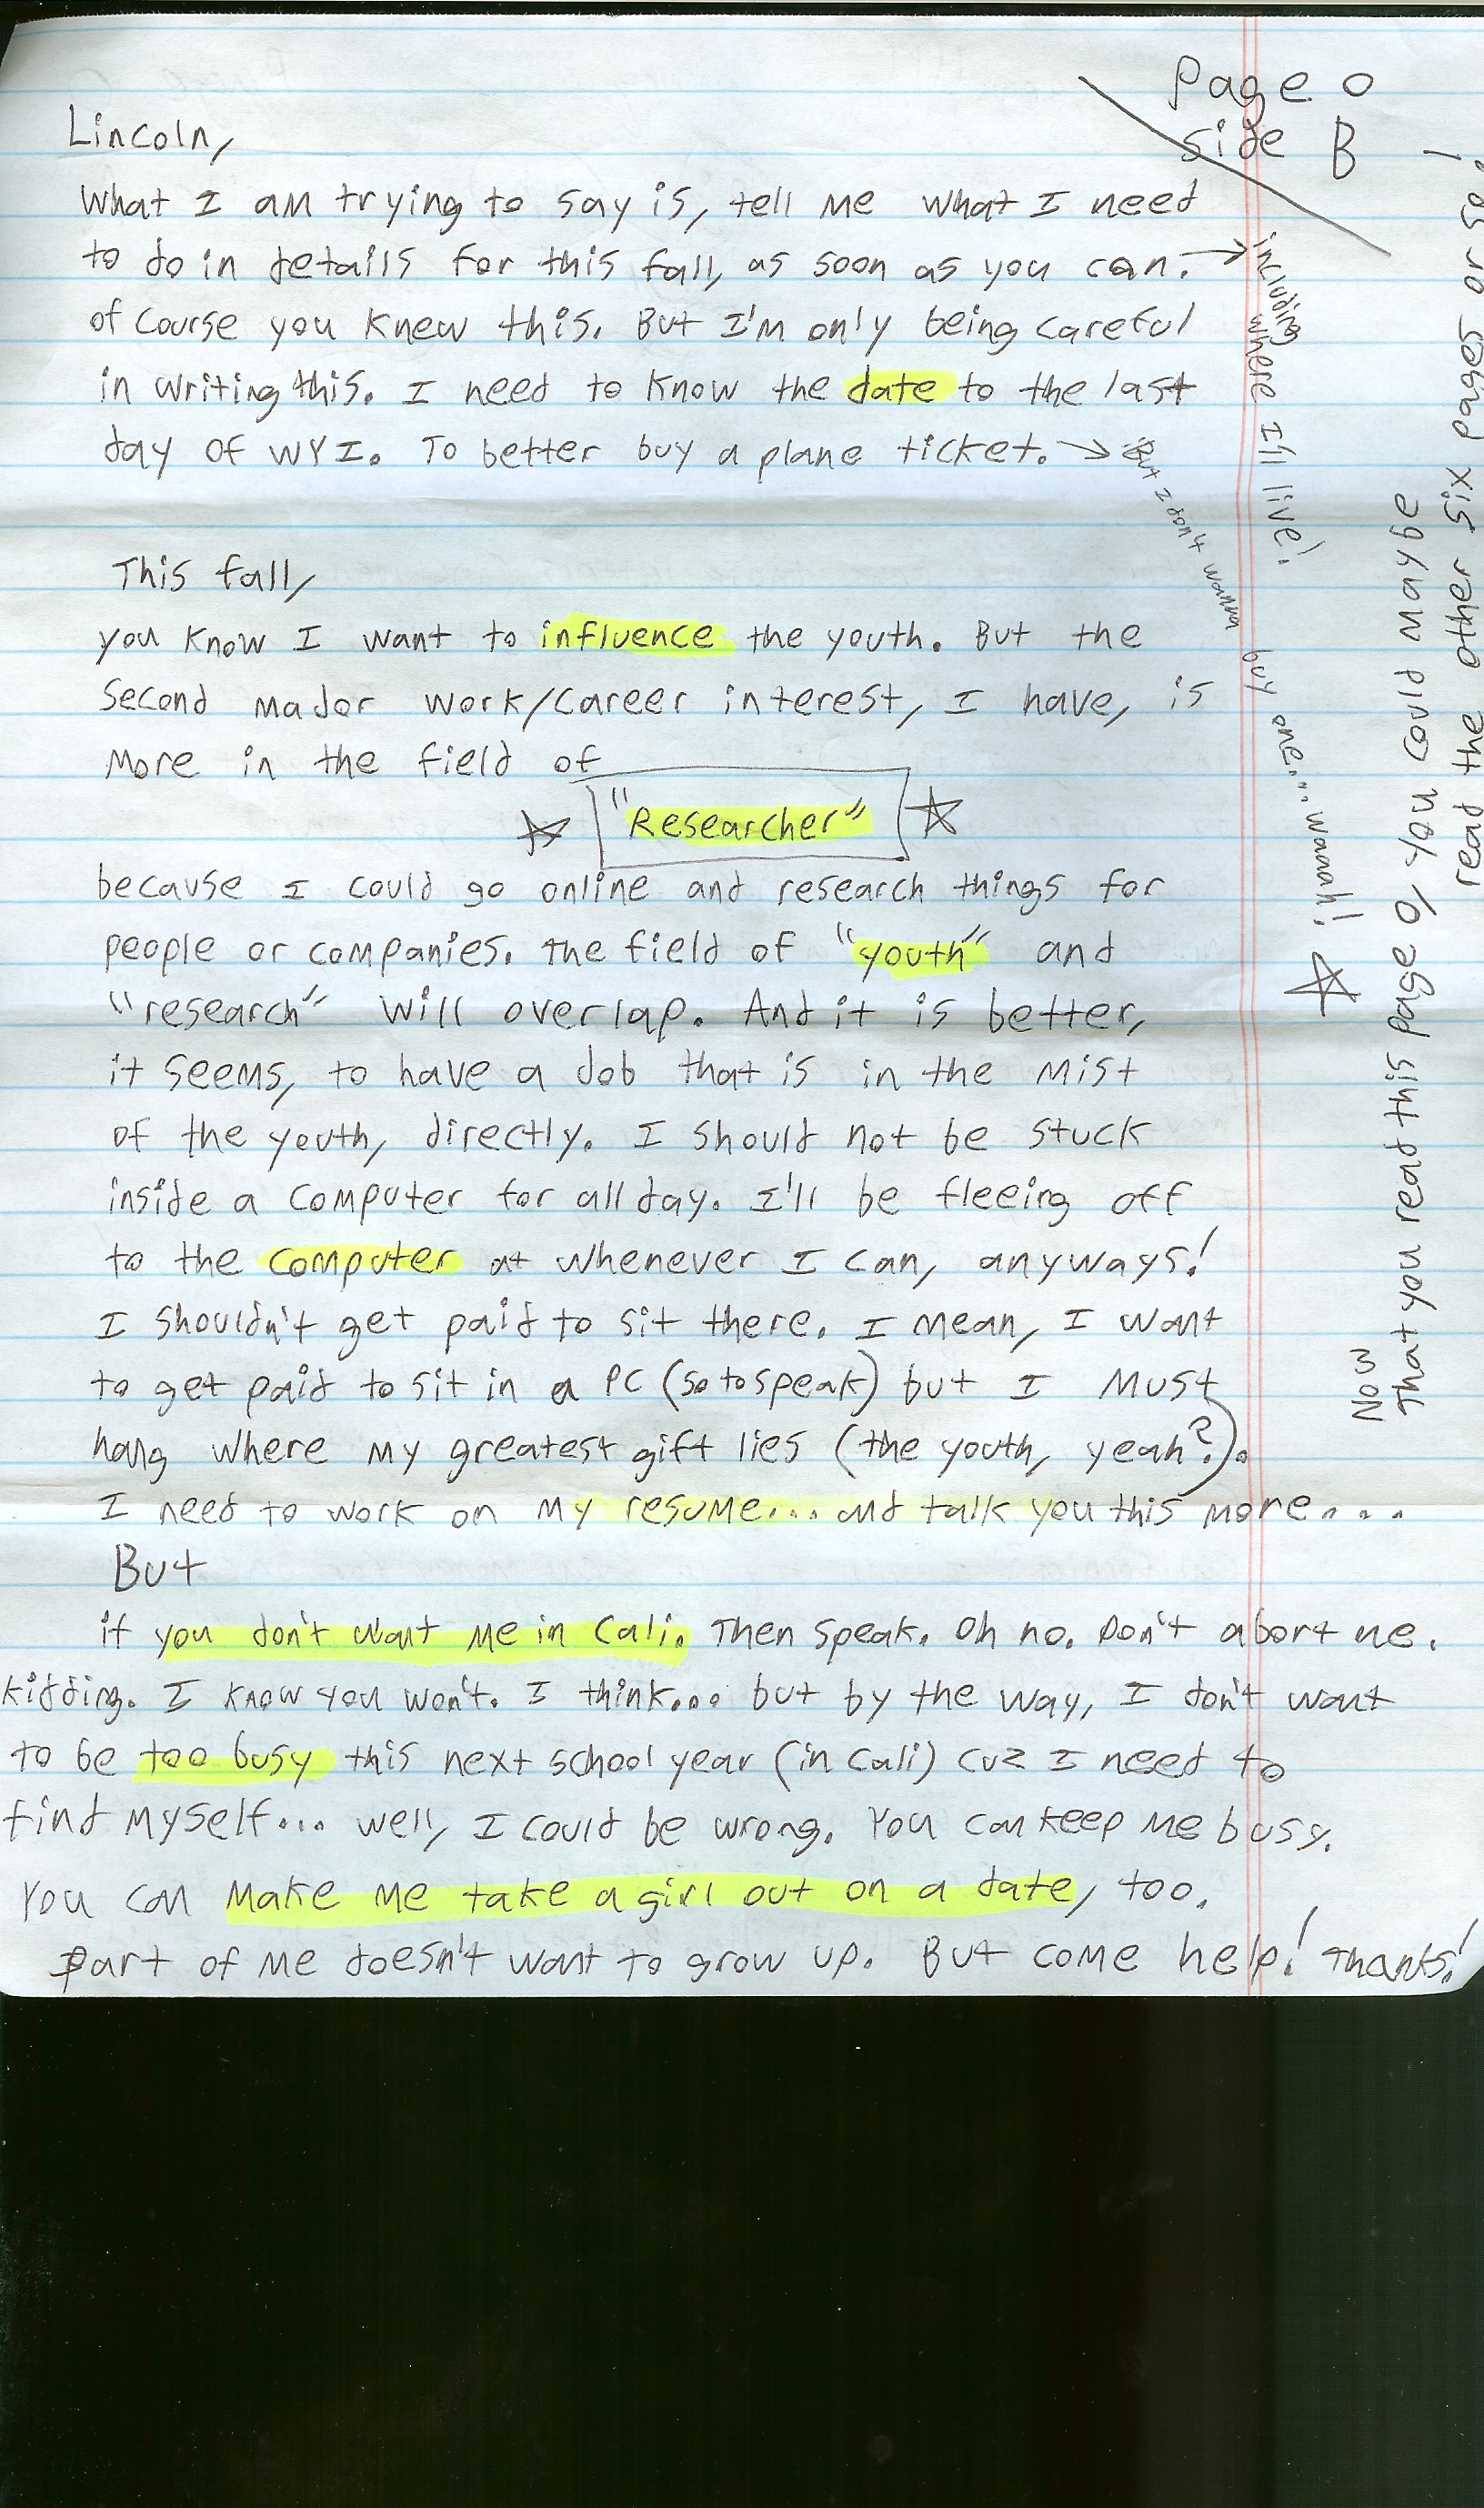 Page 0
side B
Lincoln,
What I am trying to say is, tell me what I need
to do in details for this fall, as soon as you can. →
including where I'll live!
of course you knew this. But I'm only being careful
in writing this. I need to know the date to the last
day of WYI. To better buy a plane ticket. →
But I don't wanna buy one... waaah!
This fall,
you know I want to influence the youth. But the
second major work/career interest, I have, is
more in the field of
"Researcher"
because I could go online and research things for
people or companies. The field of "youth" and
"research" will overlap. And it is better,
it seems, to have a job that is in the mist
of the youth, directly. I should not be stuck
inside a computer for all day. I'll be fleeing off
to the computer at whenever I can, anyways!
I shouldn't get paid to sit there. I mean, I want
to get paid to sit in a PC (so to speak) but I must
hang where my greatest gift lies (the youth, yeah?).
I need to work on my resume... and talk you this more....
But
if you don't want me in Cali. Then speak. Oh no. Don't abort me.
kidding. I know you won't. I think... but by the way, I don't want
to be too busy this next school year (in Cali) cuz I need to
find myself... well, I could be wrong. You can keep me busy.
You can make me take a girl out on a date, too.
Part of me doesn't want to grow up. But come help! Thanks!
Now
That you read this page 0, you could maybe
read the other six pages or so!